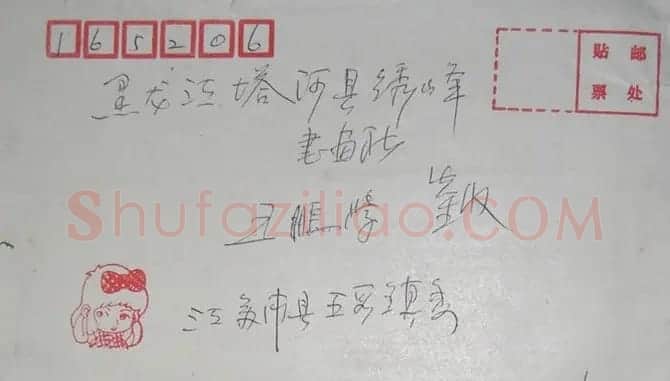 165206
贴 邮
票 处
黑龙江塔河县绣峰
书画社
王 收
Shufaziliao.COM
江苏沛县五段镇